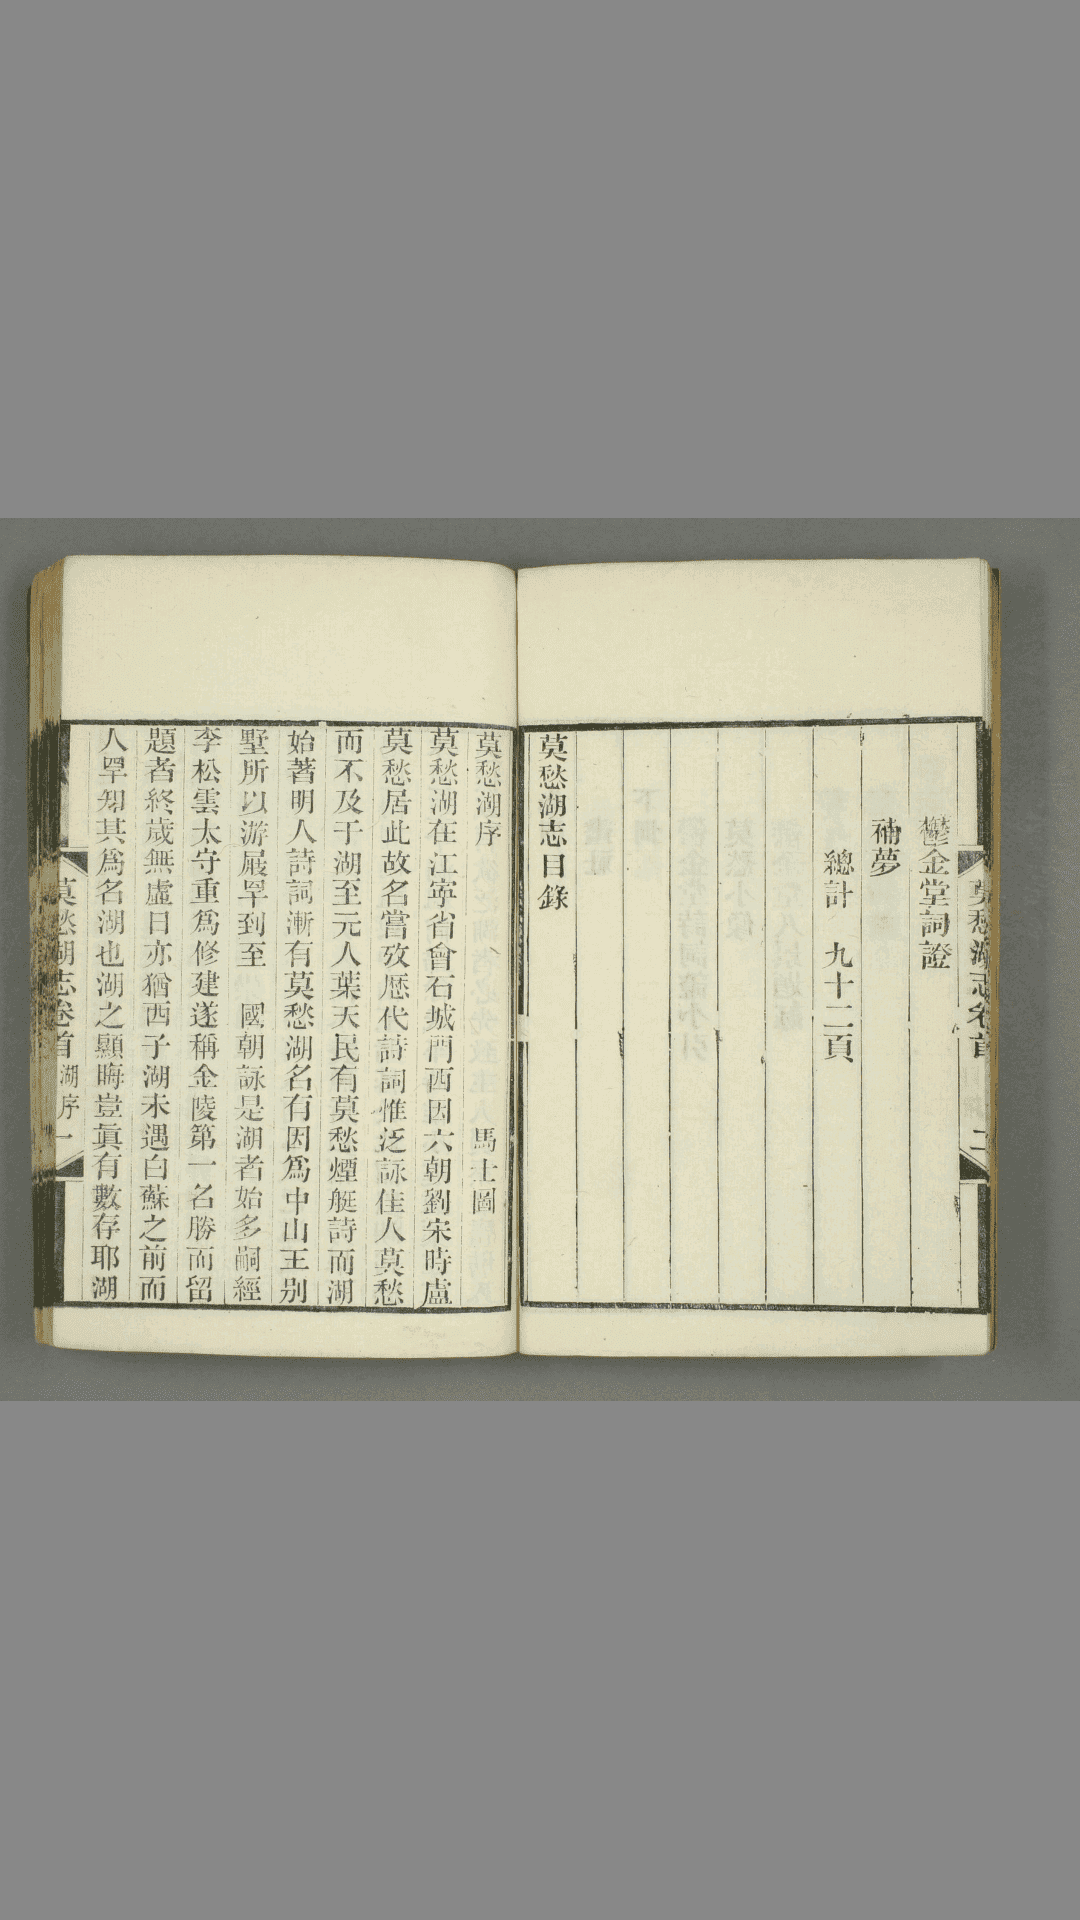 莫愁湖志卷首 二
鬱金堂詞證
補夢
總計 九十二頁
莫愁湖志目錄
莫愁湖序 馬士圖
莫愁湖在江寧省會石城門西因六朝劉宋時盧
莫愁居此故名嘗攷歷代詩詞惟泛詠佳人莫愁
而不及于湖至元人葉天民有莫愁煙艇詩而湖
始著明人詩詞漸有莫愁湖名有因爲中山王别
墅所以游屐罕到至 國朝詠是湖者始多嗣經
李松雲太守重爲修建遂稱金陵第一名勝而留
題者終歲無虛日亦猶西子湖未遇白蘇之前而
人罕知其爲名湖也湖之顯晦豈眞有數存耶湖
莫愁湖志卷首 湖序 一